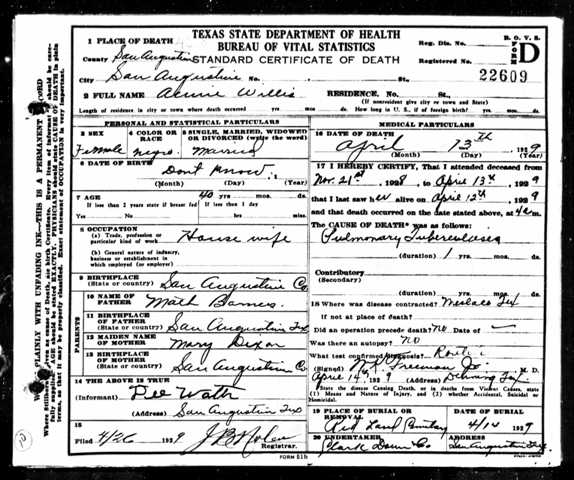 TEXAS STATE DEPARTMENT OF HEALTH
BUREAU OF VITAL STATISTICS
STANDARD CERTIFICATE OF DEATH
B. O. V. S.
FORM D
Reg. Dis. No.
Registered No.
22609
1 PLACE OF DEATH
County San Augustine
City San Augustine No. St.
2 FULL NAME Willis
RESIDENCE, No. St.
(If nonresident give city or town and State)
Length of residence in city or town where death occurred yrs. mos. ds. How long in U. S., if of foreign birth? yrs. mos. ds.
PERSONAL AND STATISTICAL PARTICULARS
3 SEX
Female
4 COLOR OR RACE
Negro
5 SINGLE, MARRIED, WIDOWED OR DIVORCED (write the word)
Married
6 DATE OF BIRTH
Dont know
(Month) (Day) (Year)
7 AGE 40 yrs. mos. ds.
If less than 2 years state if breast fed
If less than 1 day
Yes No hrs. min.
8 OCCUPATION
(a) Trade, profession or particular kind of work House wife
(b) General nature of industry, business or establishment in which employed (or employer)
9 BIRTHPLACE
(State or country) San Augustine Co
PARENTS
10 NAME OF FATHER Barnes
11 BIRTHPLACE OF FATHER
(State or country) San Augustine Tex
12 MAIDEN NAME OF MOTHER Mary Dixon
13 BIRTHPLACE OF MOTHER
(State or country) San Augustine Co
14 THE ABOVE IS TRUE
(Informant)
(Address) San Augustine Tex
15
Filed 4/26 1929
Registrar.
MEDICAL PARTICULARS
16 DATE OF DEATH
April 13TH 1929
(Month) (Day) (Year)
17 I HEREBY CERTIFY, That I attended deceased from
Nov. 21st, 1928, to April 13th, 1929
that I last saw her alive on April 12th 1929
and that death occurred on the date stated above, at 4 m.
The CAUSE OF DEATH* was as follows:
Pulmonary Tuberculosis
(duration) 1 yrs. mos. ds.
Contributory
(Secondary)
(duration) yrs. mos. ds.
18 Where was disease contracted? Tex
If not at place of death?
Did an operation precede death? NO Date of —
Was there an autopsy? NO
What test confirmed diagnosis?
(Signed) Freeman M. D.
April 14, 1929 (Address) Tex
State the disease Causing Death, or in deaths from Violent Causes, state (1) Means and Nature of Injury, and (2) whether Accidental, Suicidal or Homicidal.
19 PLACE OF BURIAL OR REMOVAL
Red Land
DATE OF BURIAL
4/14 1929
20 UNDERTAKER
Clark Co
ADDRESS
San Augustine Tex
FORM 51b